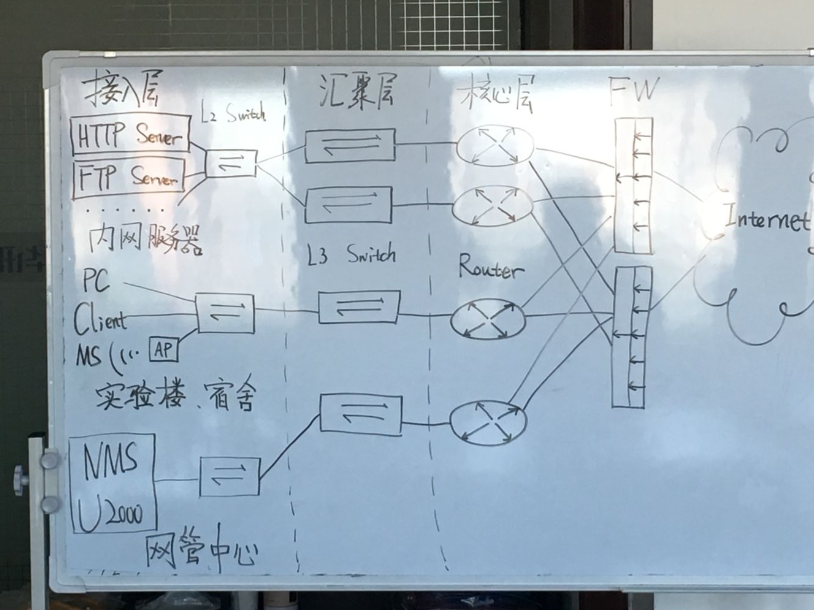 接入层
汇聚层
核心层
FW
L2 Switch
HTTP Server
FTP Server
......
内网服务器
L3 Switch
Router
Internet
PC
Client
MS
AP
实验楼、宿舍
NMS
U2000
网管中心